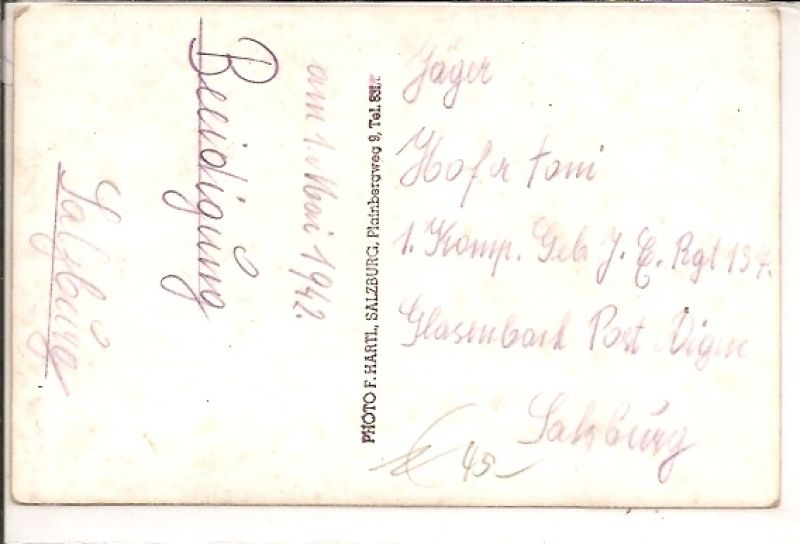 Beeidigung
am 1. Mai 1942.
Salzburg
PHOTO F. HARTL, SALZBURG, Plainbergweg 9, Tel. 831/T
Jäger
Hofer Toni
1. Komp. Geb. J. E. Rgt 137.
Glasenbach Post Aigen
Salzburg
€ 45-